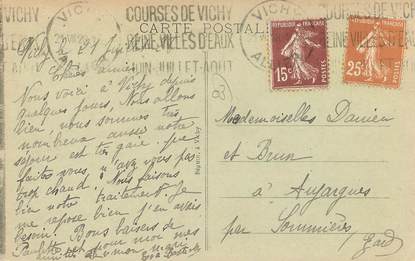 COURSES DE VICHY
REINE VILLES D'EAUX
JUIN-JUILLET-AOUT
VICHY
CARTE POSTALE
REPUBLIQUE FRANÇAISE
15c
POSTES
REPUBLIQUE FRANÇAISE
25c
POSTES
Vichy le 21
Chères amies
Nous voici à Vichy depuis
quelques jours, Nous allons
bien, nous sommes très
nombreux aussi notre
séjour est très gai. que
faites vous, n'avez vous pas
trop chaud? Nous faisons
bien notre traitement. Je
me repose bien j'en avais
besoin. Bons baisers de
pour moi mes
amitiés de mon mari
Mademoiselles Danien
et Brun
à Aujargues
par Sommières
Gard